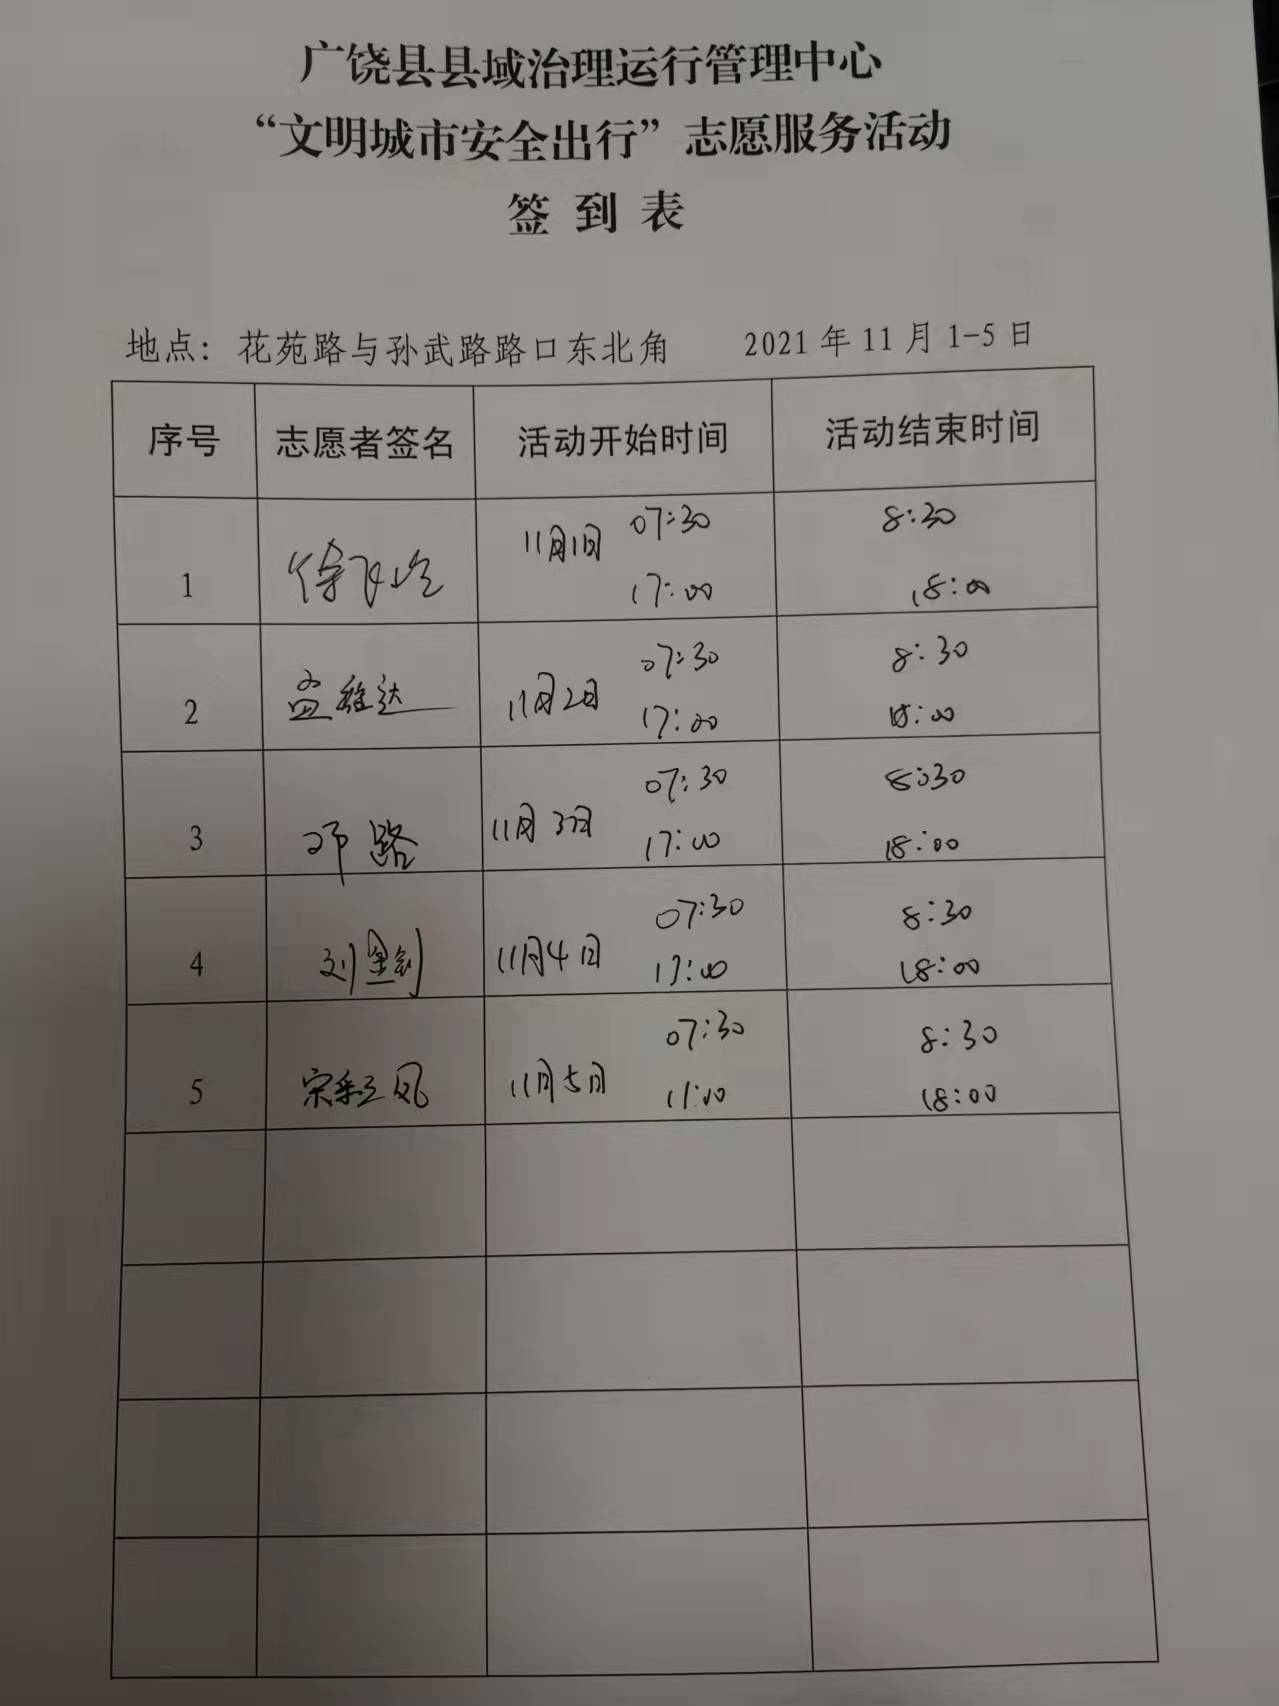 广饶县县域治理运行管理中心
“文明城市安全出行”志愿服务活动
签到表
地点：花苑路与孙武路路口东北角 2021年11月1-5日
序号 志愿者签名 活动开始时间 活动结束时间
07:30 8:30
1 11月1日
17:00 18:00
07:30 8:30
2 孟维达 11月2日
17:00 18:00
07:30 8:30
3 邓路 11月3日
17:00 18:00
07:30 8:30
4 刘 11月4日
17:00 18:00
07:30 8:30
5 宋彩凤 11月5日
18:00